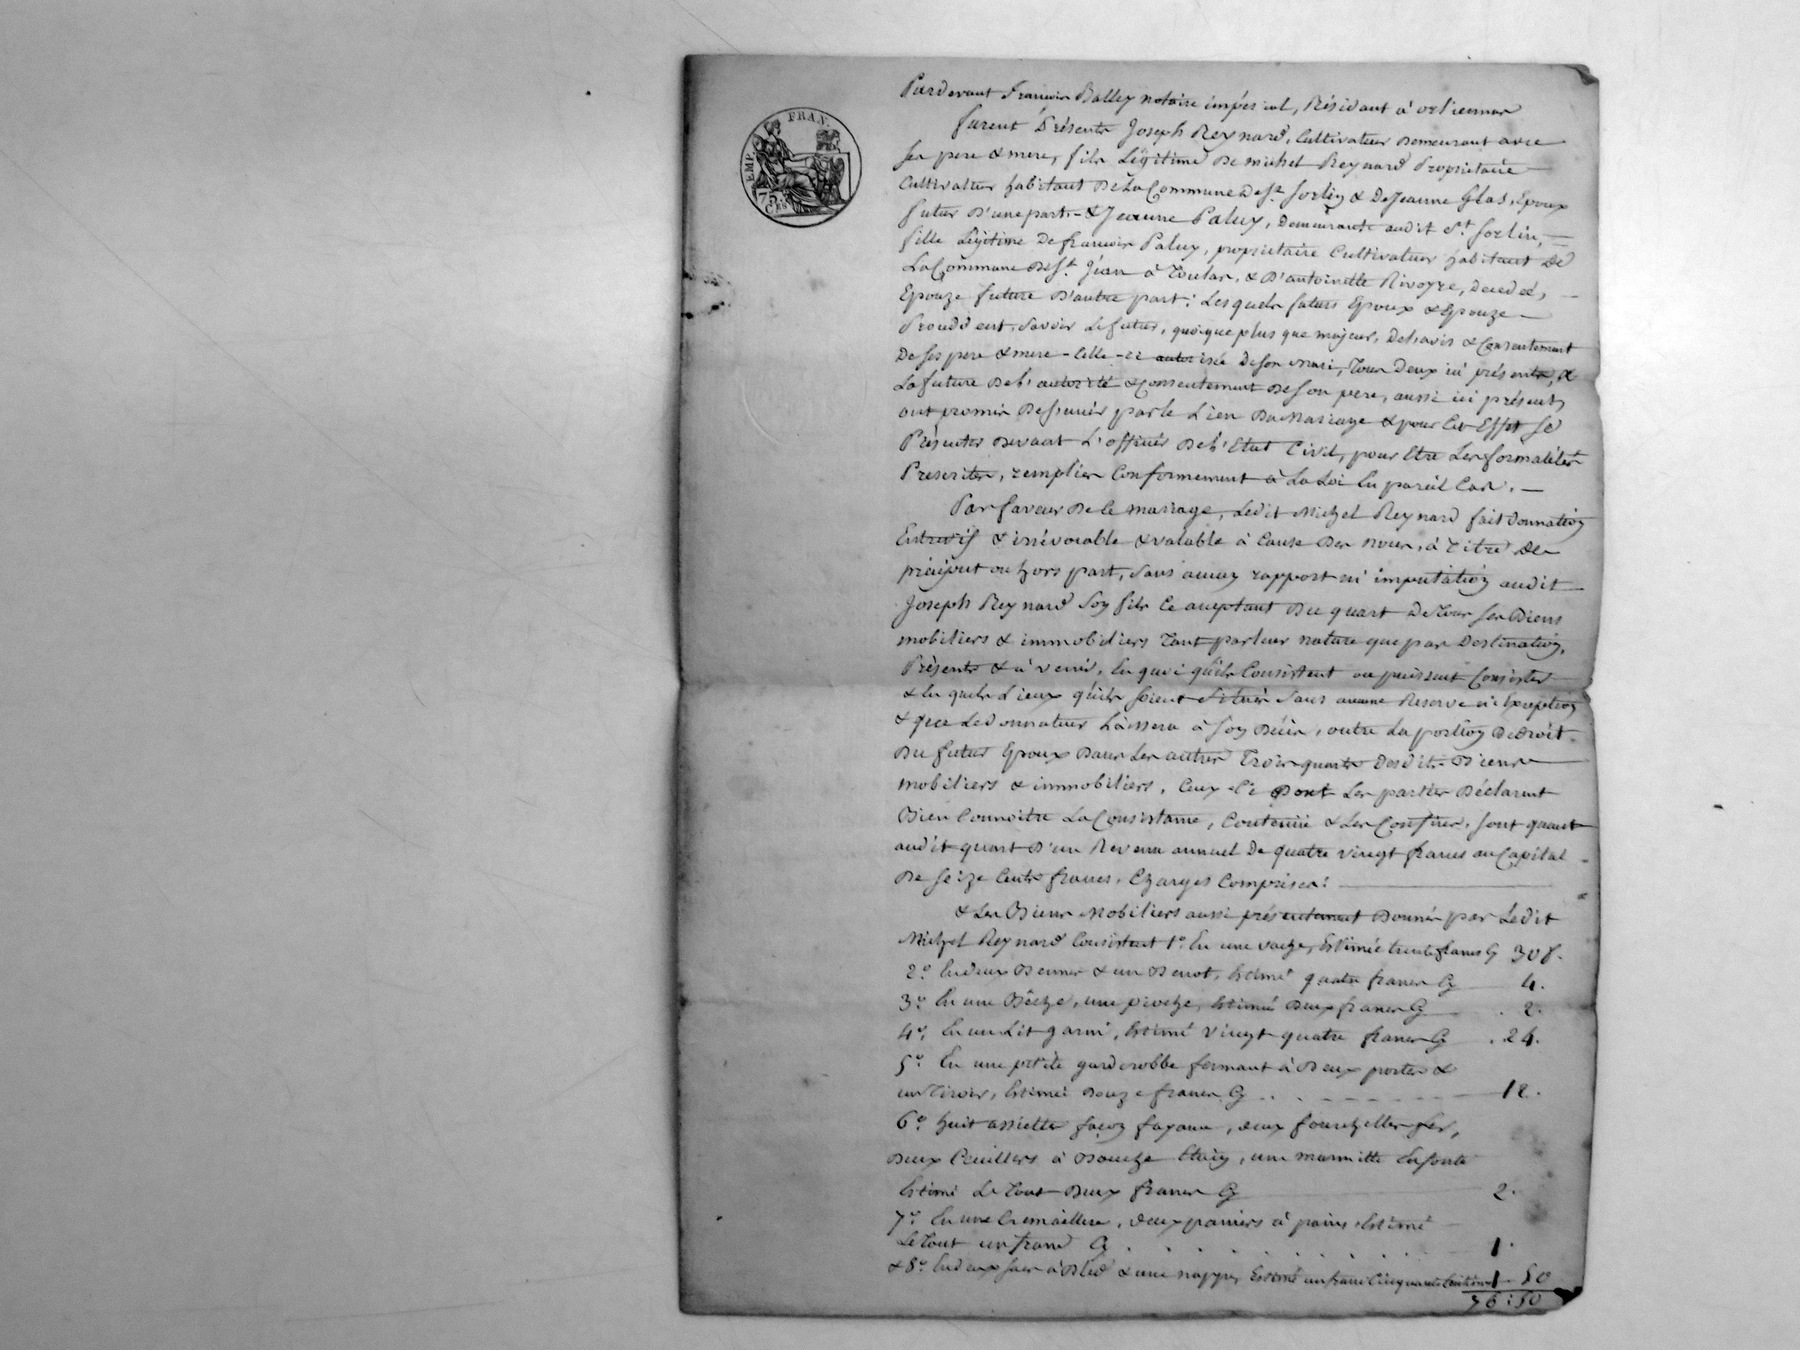 EMP. FRAN.
75 Ces
Pardevant francois Balley notaire impérial, Résidant à orliennas
furent Présents Joseph Reynard, Cultivateur Demeurant avec
ses pere & mere, fils Légitime De michel Reynard Proprietaire
Cultivateur habitant De La Commune De St. Sorlin & De Jeanne Glas, Epoux
futur D'une part - & Jeanne Paluy, Demeurante audit St. Sorlin,
fille Légitime De francois Paluy, proprietaire Cultivateur habitant De
La Commune De St. Jean à Toulas, & D'antoinette Rivoyre, Decedée,
Epouze future D'autre part: Lesquels futurs Epoux & Epouze
Procedent, Savoir Le futur, quoique plus que majeur, De L'avis & Consentement
De ses pere & mere - Celle-ci autorisée De son mari, Tous Deux ici présents, &
La future De L'autorité & Consentement De son pere, aussi ici présent,
ont promis De S'unir par le Lien Du Mariage & pour Cet Effet Se
Présenter Devant L'officier De L'Etat Civil, pour Etre Les formalités
Prescrites, remplies Conformement à La Loi En pareil Cas. —
Par faveur De Ce mariage, Ledit Michel Reynard fait Donnation
Entrevif & irrévocable & valable à Cause Des Noces, à Titre De
préciput ou hors part, Sans aucun rapport ni imputation audit
Joseph Reynard Son fils Ce acceptant Du quart De Tous ses Biens
mobiliers & immobiliers Tant par leur nature que par Destination,
Présents & à venir, En quoi qu'ils Consistent ou puissent Consister
& En quels Lieux qu'ils soient Situés Sans aucune Reserve ni Exception
& que Le Donnateur Laissera à Son Décès, outre La portion De droit
Du futur Epoux Dans Les autres Trois quarts Desdits Biens
mobiliers & immobiliers, Ceux-Ci Dont Les parties Déclarent
Bien Connoitre La Consistance, Contenue & Les Confins, Sont quant
audit quart D'un Revenu annuel De quatre vingt francs au Capital
De Seize Cents francs, Charges Comprises: —
& Les Biens Mobiliers aussi présentement Donnés par Ledit
Michel Reynard Consistent 1°. En une vache, Estimée trente francs Cy 30 f.
2°. En deux Bennes & un Benot, Estimé quatre francs Cy 4.
3°. En une Bêche, une pioche, Estimé Deux francs Cy 2.
4°. En un Lit garni, Estimé vingt quatre francs Cy 24.
5°. En une petite garderobbe fermant à Deux portes &
un Tiroir, Estimé Douze francs Cy 12.
6°. huit assiettes façon fayance, deux fourchettes fer,
Deux Cuillers à Bouche Etain, une marmitte En fonte
Estimé Le Tout Deux francs Cy 2.
7°. En une Cremaillere, deux paniers à pains, Estimé
Le Tout un franc Cy 1.
& 8°. En deux sacs à Bled & une nappe, Estimé un franc Cinquante Centimes 1. 50
76: 50